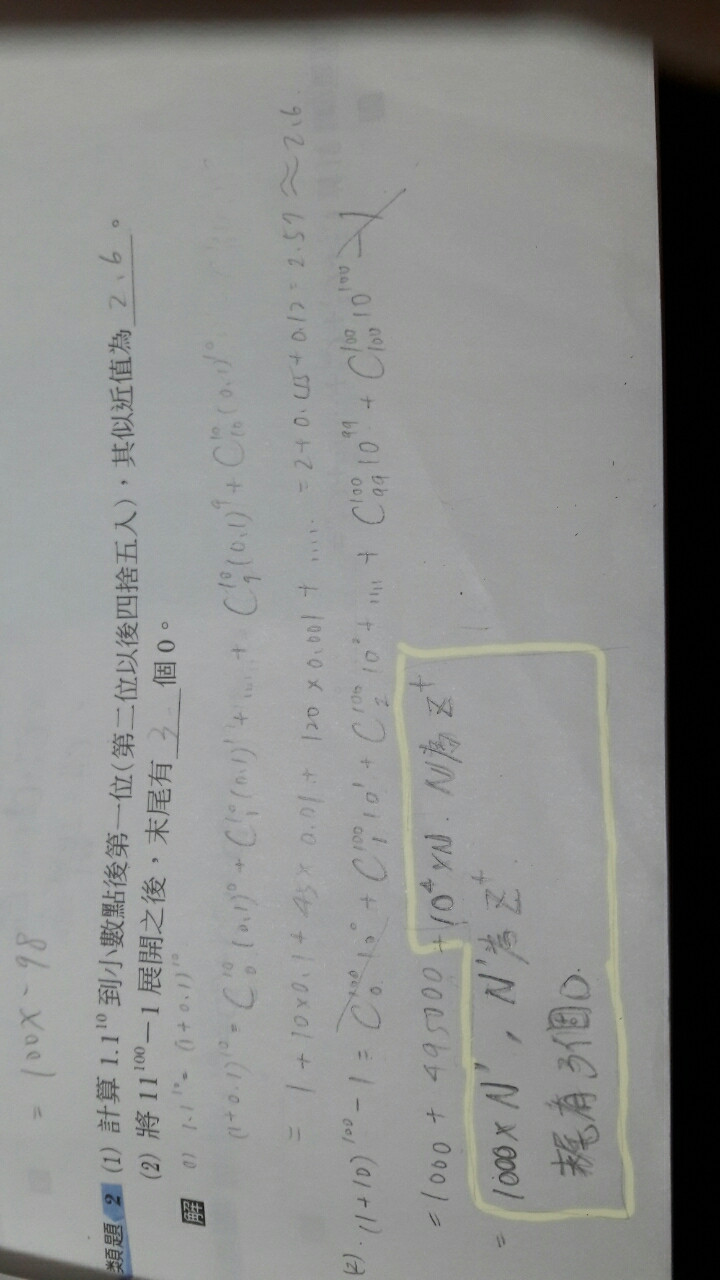 = 100x - 98
類題 2 (1) 計算 1.1¹⁰ 到小數點後第一位(第二位以後四捨五入),其似近值為 2.6 。
(2) 將 11¹⁰⁰ − 1 展開之後,末尾有 3 個 0。
解 (1) 1.1¹⁰ = (1+0.1)¹⁰
(1+0.1)¹⁰ = C¹⁰₀(0.1)⁰ + C¹⁰₁(0.1)¹ + ..... + C¹⁰₉(0.1)⁹ + C¹⁰₁₀(0.1)¹⁰
= 1 + 10×0.1 + 45×0.01 + 120×0.001 + ..... = 2+0.45+0.12 = 2.57 ≈ 2.6.
(2). (1+10)¹⁰⁰ - 1 = C¹⁰⁰₀10⁰ + C¹⁰⁰₁10¹ + C¹⁰⁰₂10² + .... + C¹⁰⁰₉₉10⁹⁹ + C¹⁰⁰₁₀₀10¹⁰⁰ - 1
= 1000 + 495000 + 10⁴×N. N為Z⁺
= 1000×N', N'為Z⁺.
末尾有3個0.